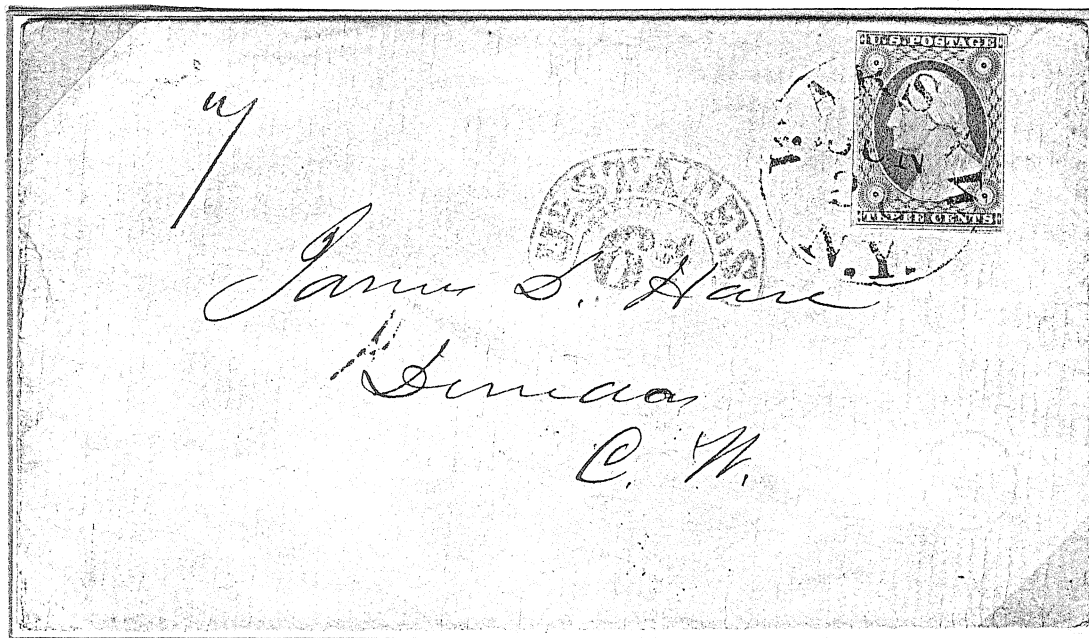 U.S. POSTAGE
THREE CENTS
WARSAW
N.Y.
U. STATES
6d
James S. Hare
Dundas
C. W.